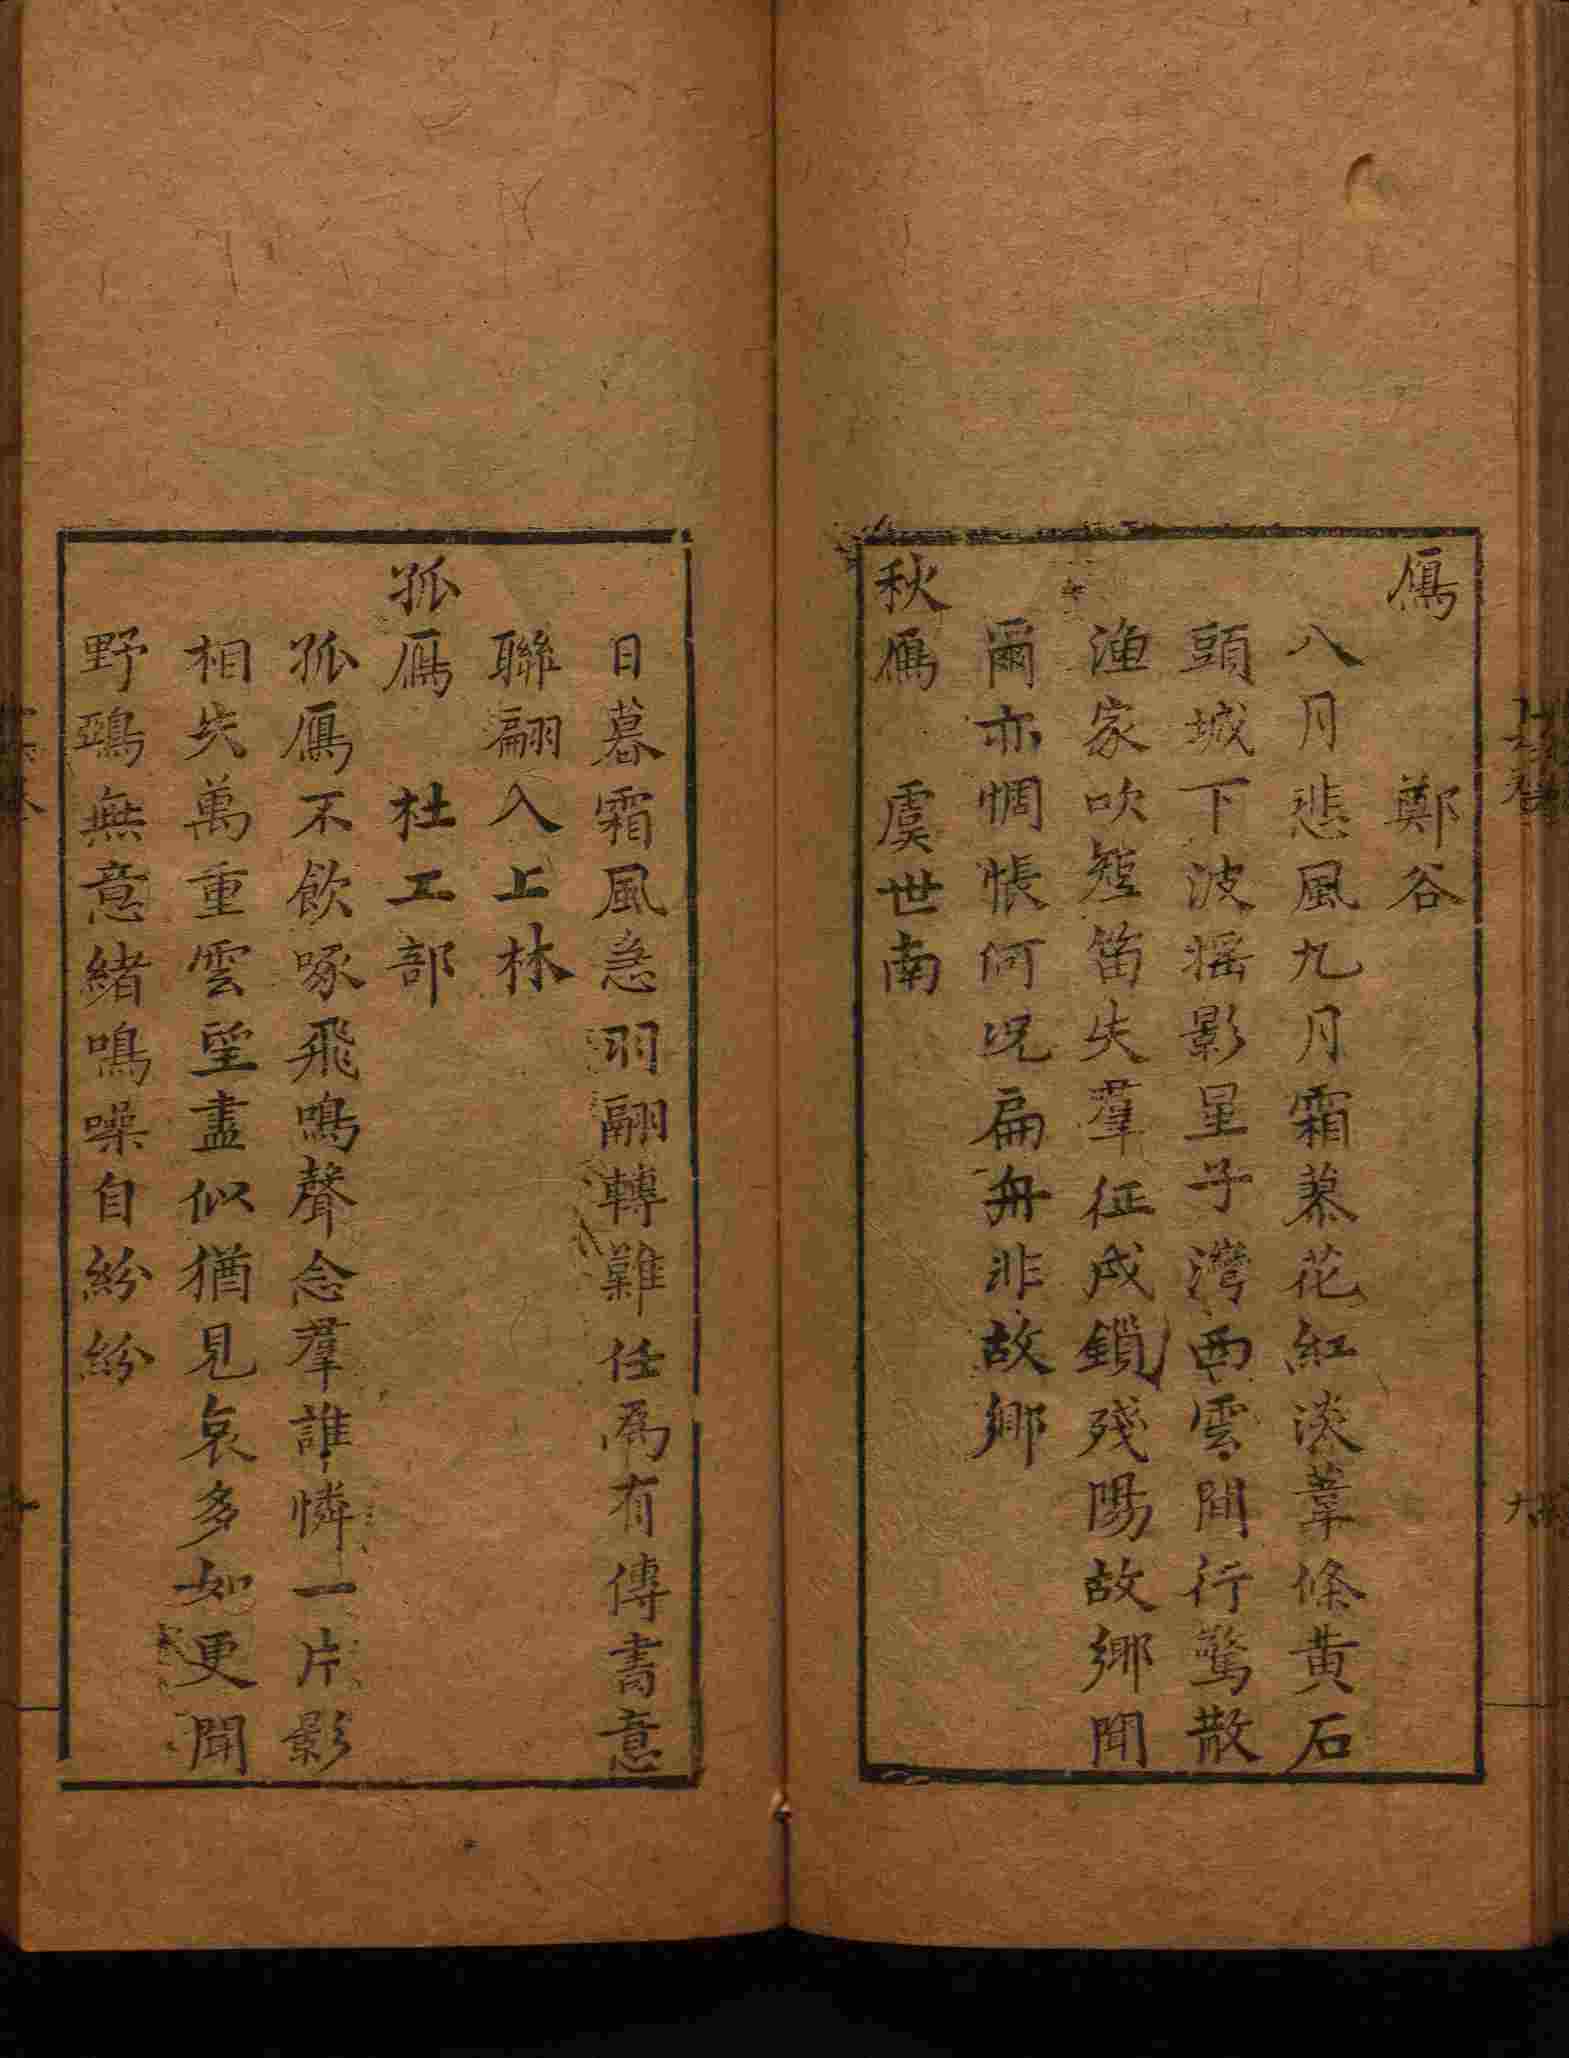 鴈　鄭谷
八月悲風九月霜蓼花紅淡葦條黃石
頭城下波搖影星子灣西雲間行驚散
漁家吹短笛失羣征戍鎖殘陽故鄉聞
爾亦惆悵何況扁舟非故鄉
秋鴈　虞世南
日暮霜風急羽翮轉難任爲有傳書意
聯翩入上林
孤鴈　杜工部
孤鴈不飲啄飛鳴聲念羣誰憐一片影
相失萬重雲望盡似猶見哀多如更聞
野鵶無意緒鳴噪自紛紛